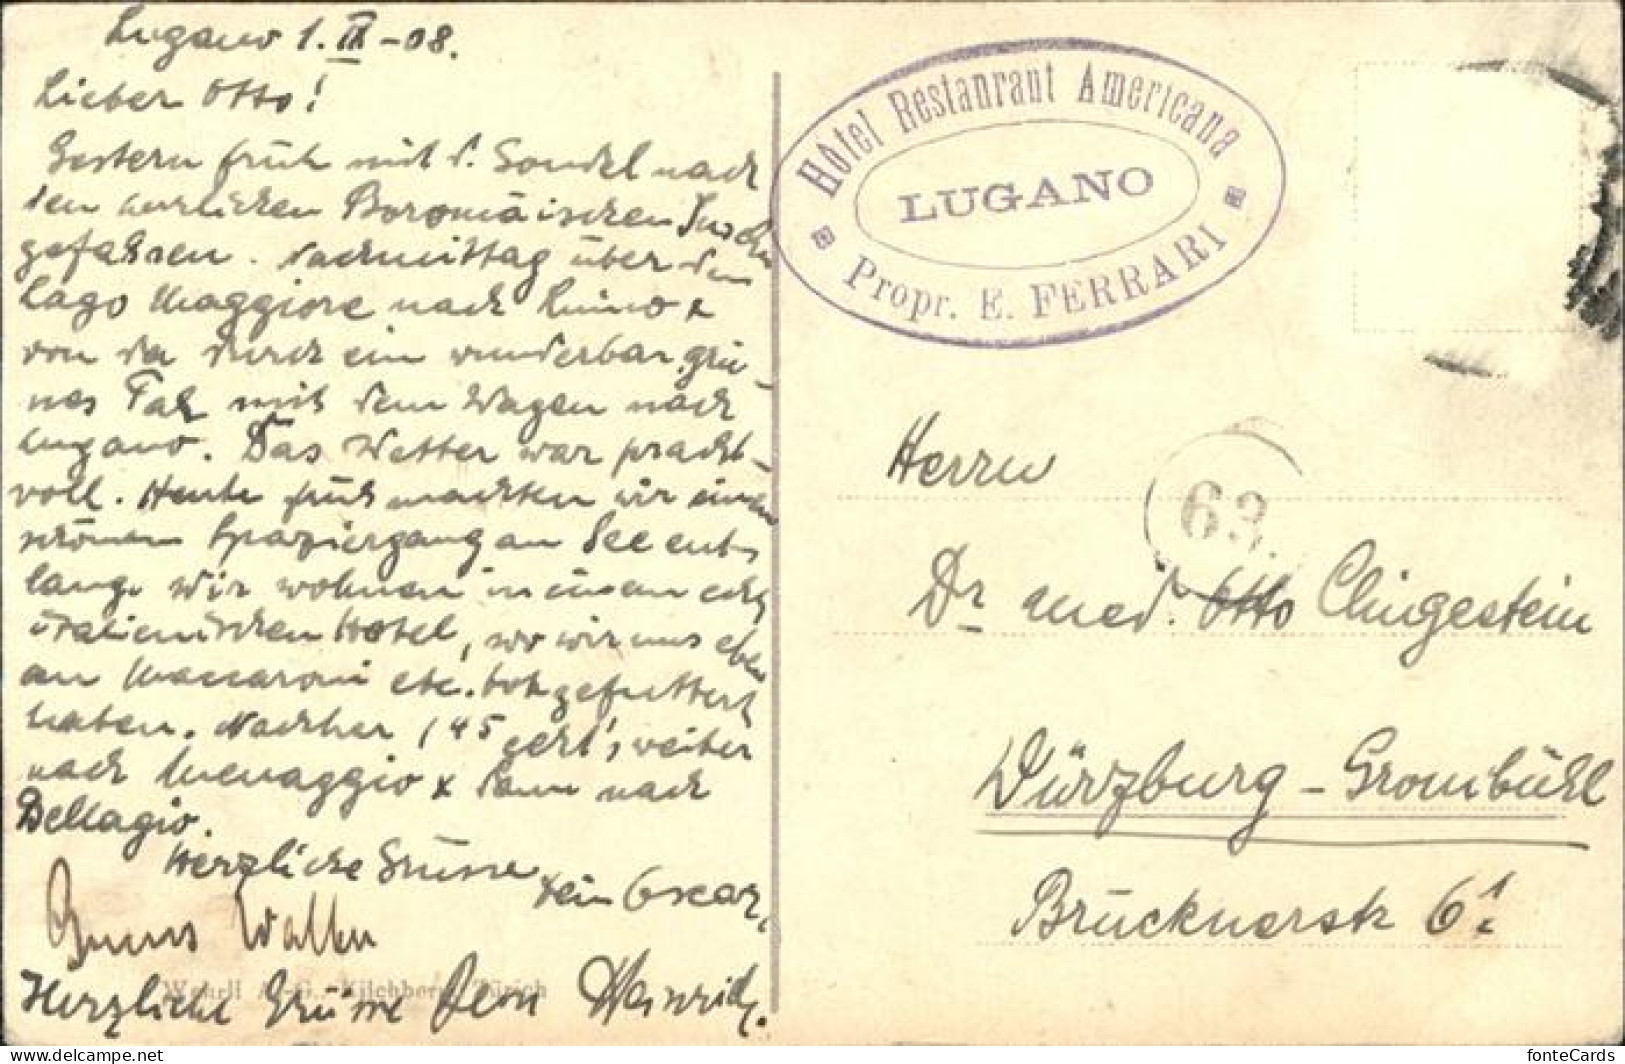 Lugano 1. IX - 08.
Lieber Otto!
Gestern früh mit d. Gondel nach
den herrlichen Boromäischen Inseln
gefahren. Nachmittag über den
Lago Maggiore nach Luino &
von da durch ein wunderbar grü-
nes Tal mit dem Wagen nach
Lugano. Das Wetter war pracht-
voll. Heute früh machten wir einen
schönen Spaziergang am See ent-
lang. Wir wohnen in einem echt
italienischen Hotel, wo wir uns eben
an Maccaroni etc. gefuttert
haben. Nachher 1 45 geht's weiter
nach Menaggio & dann nach
Bellagio.
Herzliche Grüsse
Dein Oscar,
Gruss Walter
Herzliche Grüsse Dein Heinrich.
Wehrli A.-G., Kilchberg Zürich
Hôtel Restaurant Americana
LUGANO
Propr. E. FERRARI
63.
Herrn
Dr med. Otto Clingestein
Würzburg - Grombühl
Brücknerstr 6 1/2
delcampe.net
fonteCards